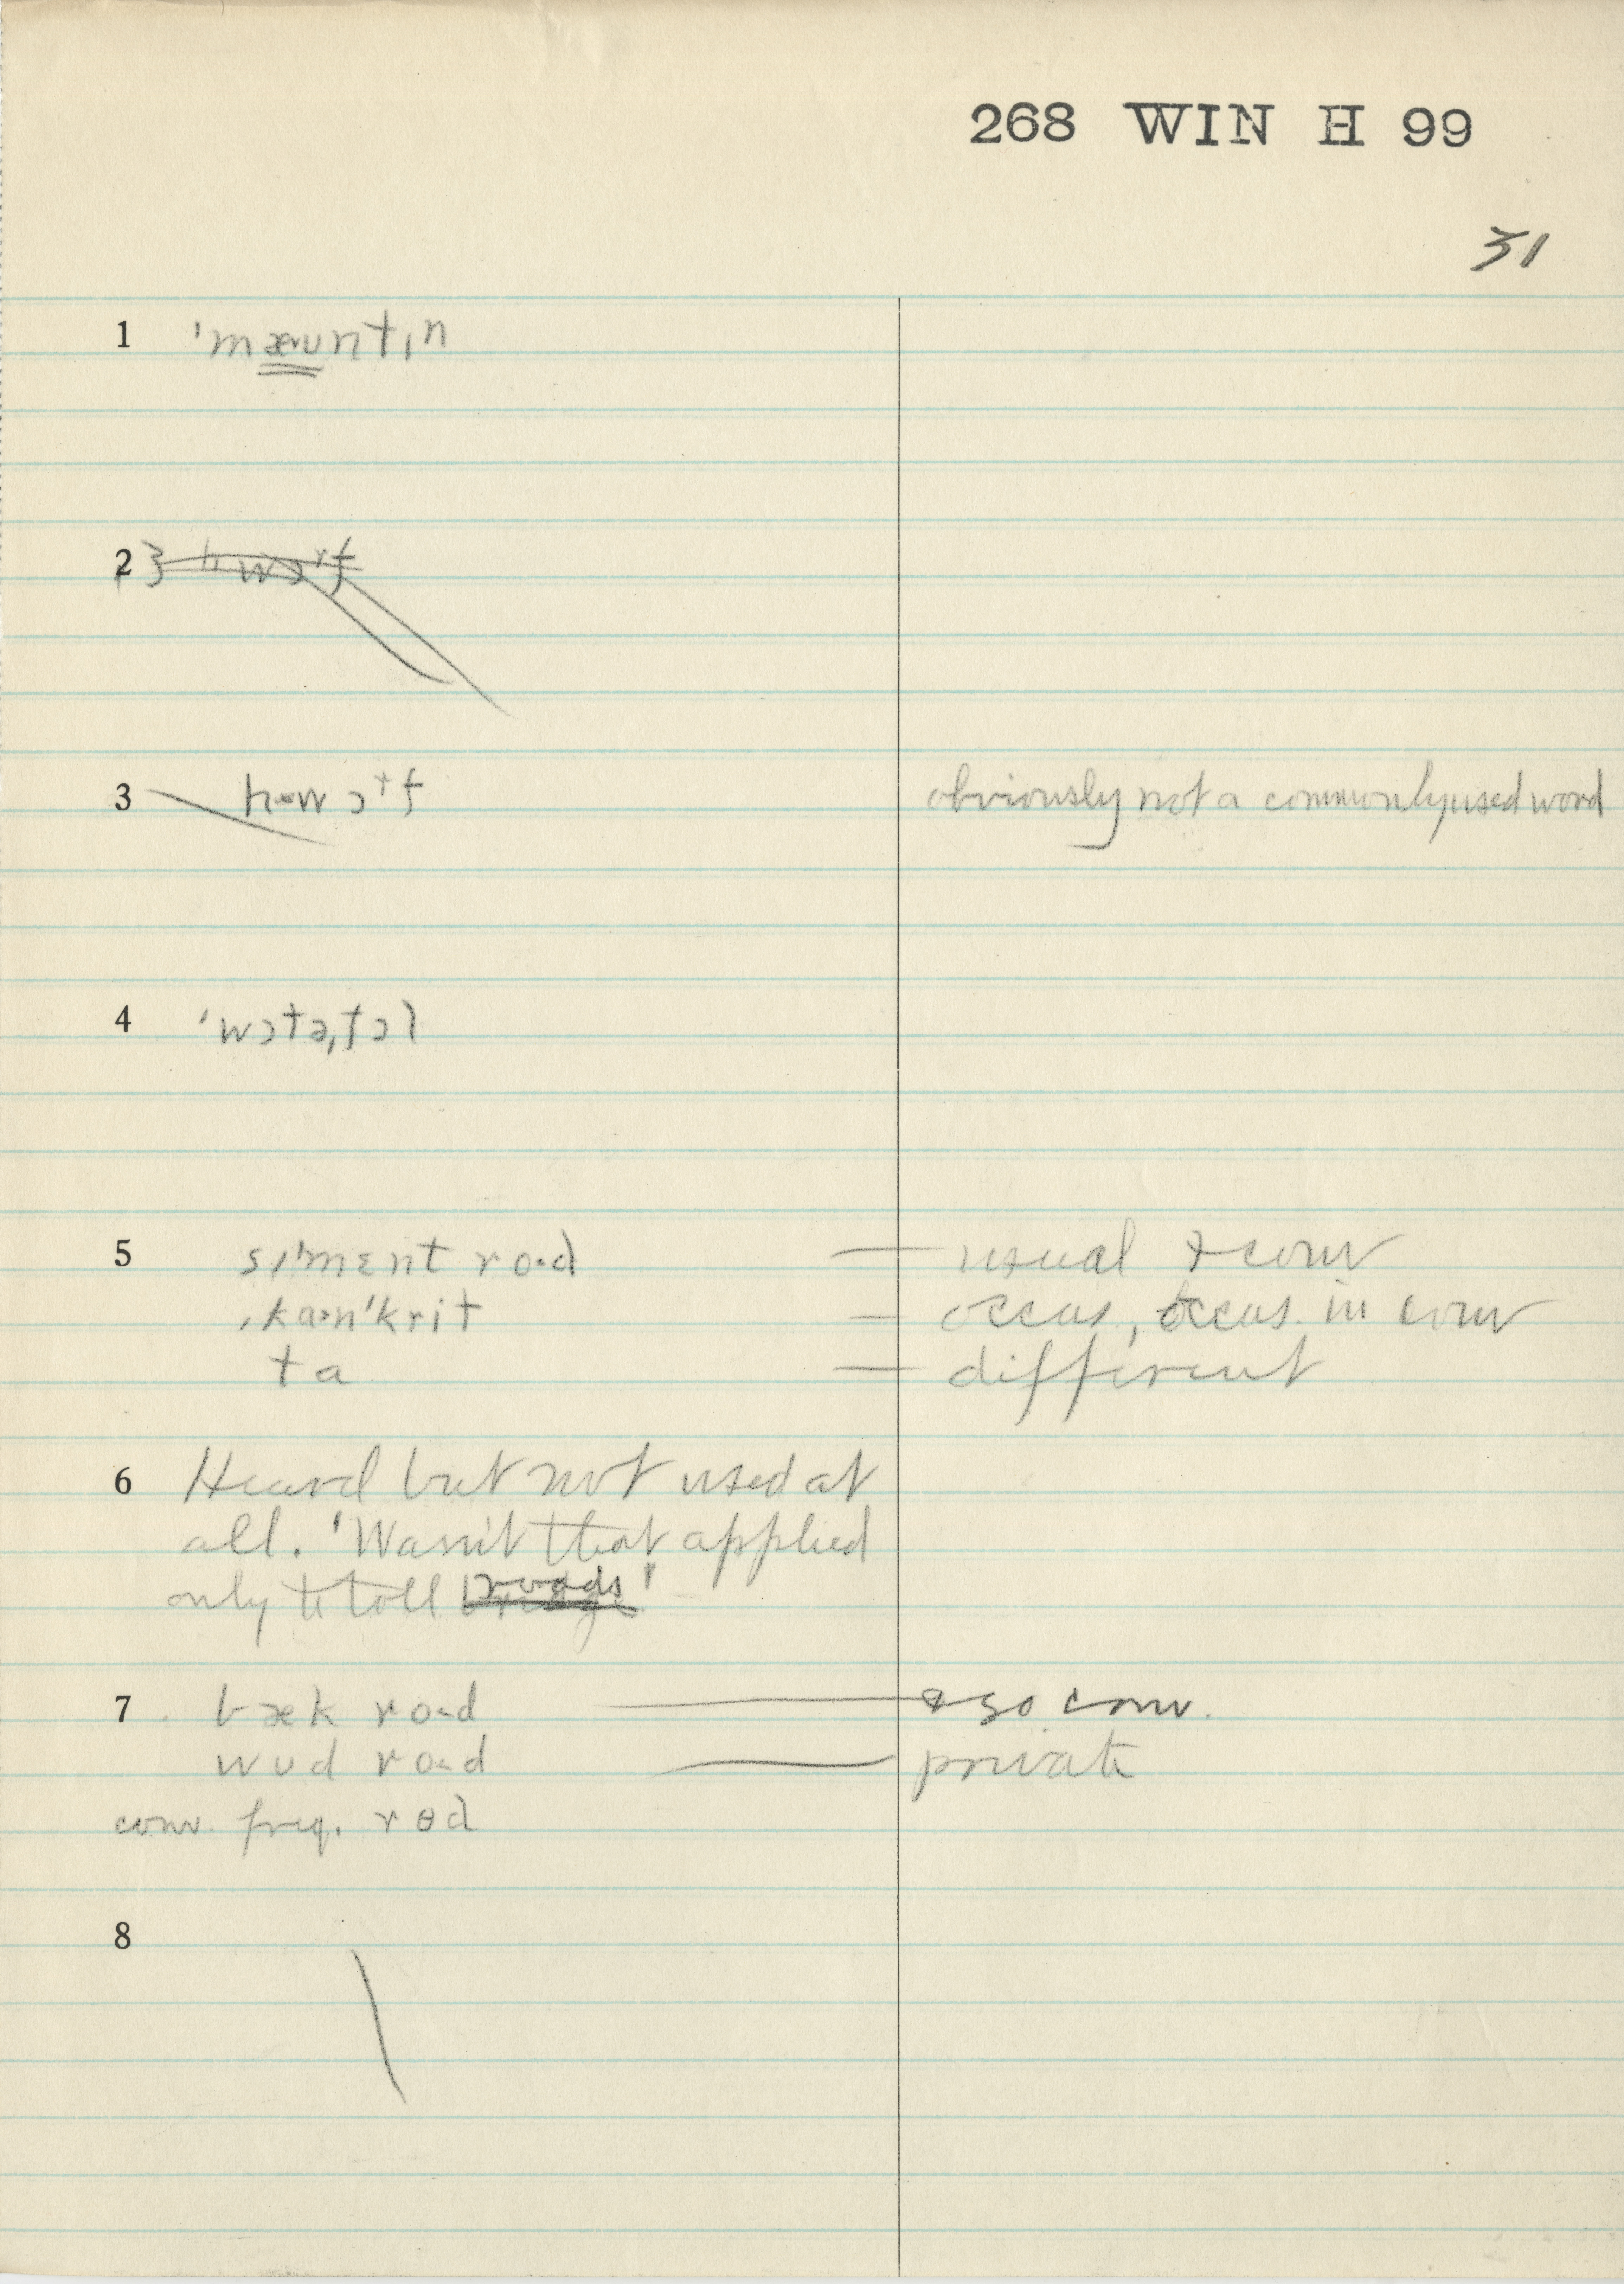 268 WIN H 99
31
1 ˈmæʊntˌn
2 3 hwɔrf
3 hwɔrf obviously not a commonly used word
4 ˈwɔtəˌfɔl
5 sɪˈmɛnt rod — usual & conv
ˌkanˈkrit — occas, occas. in conv
ta — different
6 Heard but not used at
all. 'Wasn't that applied
only to toll roads'
7 bæk rod — also conv.
wud rod — private
conv. freq. rɵd
8